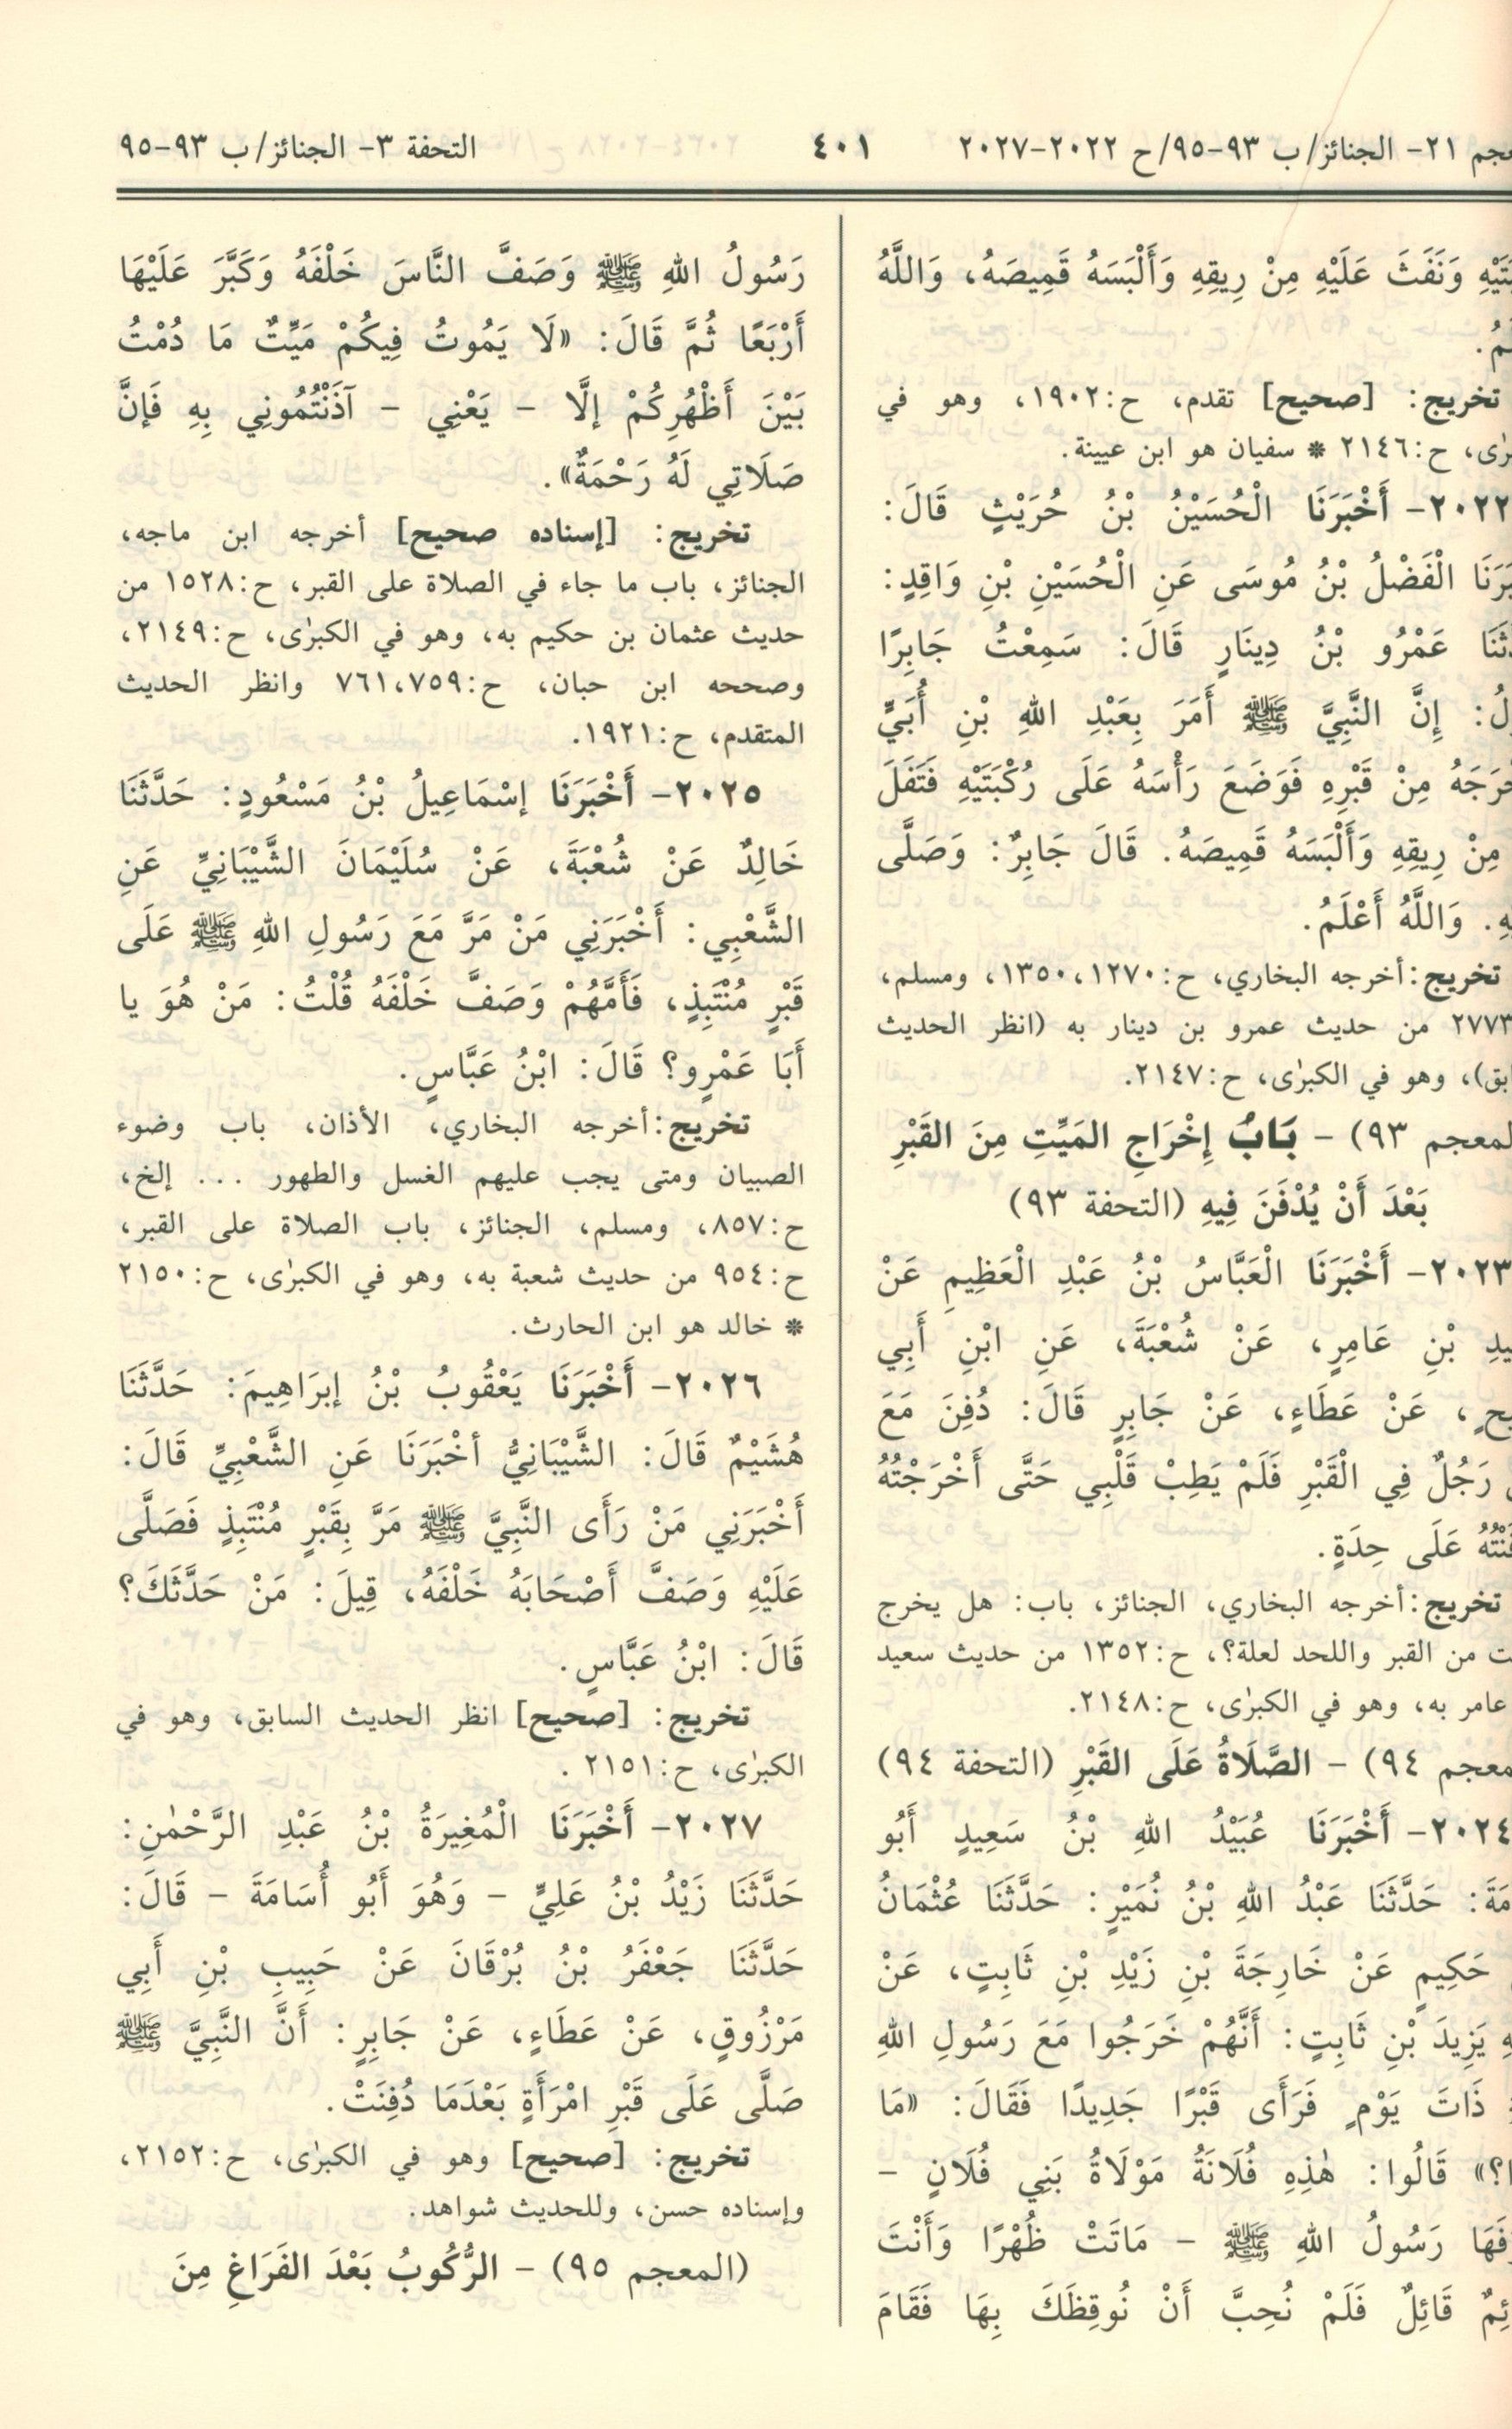 المعجم ٢١- الجنائز/ ب ٩٣-٩٥/ ح ٢٠٢٢-٢٠٢٧ ٤٠١ التحفة ٣- الجنائز/ ب ٩٣-٩٥
وَنَفَثَ عَلَيْهِ مِنْ رِيقِهِ وَأَلْبَسَهُ قَمِيصَهُ، وَاللَّهُ
تخريج: [صحيح] تقدم، ح:١٩٠٢، وهو في
الكبرٰى، ح:٢١٤٦ * سفيان هو ابن عيينة.
٢٠٢٢- أَخْبَرَنَا الْحُسَيْنُ بْنُ حُرَيْثٍ قَالَ:
أَخْبَرَنَا الْفَضْلُ بْنُ مُوسَى عَنِ الْحُسَيْنِ بْنِ وَاقِدٍ:
حَدَّثَنَا عَمْرُو بْنُ دِينَارٍ قَالَ: سَمِعْتُ جَابِرًا
يَقُولُ: إِنَّ النَّبِيَّ ﷺ أَمَرَ بِعَبْدِ اللهِ بْنِ أُبَيٍّ
فَأَخْرَجَهُ مِنْ قَبْرِهِ فَوَضَعَ رَأْسَهُ عَلَى رُكْبَتَيْهِ فَتَفَلَ
مِنْ رِيقِهِ وَأَلْبَسَهُ قَمِيصَهُ. قَالَ جَابِرٌ: وَصَلَّى
وَاللَّهُ أَعْلَمُ.
تخريج:أخرجه البخاري، ح:١٣٥٠،١٢٧٠، ومسلم،
٢٧٧٣ من حديث عمرو بن دينار به (انظر الحديث
السابق)، وهو في الكبرٰى، ح:٢١٤٧.
(المعجم ٩٣) - بَابُ إِخْرَاجِ المَيِّتِ مِنَ القَبْرِ
بَعْدَ أَنْ يُدْفَنَ فِيهِ (التحفة ٩٣)
٢٠٢٣- أَخْبَرَنَا الْعَبَّاسُ بْنُ عَبْدِ الْعَظِيمِ عَنْ
سَعِيدِ بْنِ عَامِرٍ، عَنْ شُعْبَةَ، عَنِ ابْنِ أَبِي
نَجِيحٍ، عَنْ عَطَاءٍ، عَنْ جَابِرٍ قَالَ: دُفِنَ مَعَ
رَجُلٌ فِي الْقَبْرِ فَلَمْ يَطِبْ قَلْبِي حَتَّى أَخْرَجْتُهُ
وَدَفَنْتُهُ عَلَى حِدَةٍ.
تخريج:أخرجه البخاري، الجنائز، باب: هل يخرج
الميت من القبر واللحد لعلة؟، ح:١٣٥٢ من حديث سعيد
عامر به، وهو في الكبرٰى، ح:٢١٤٨.
(المعجم ٩٤) - الصَّلَاةُ عَلَى القَبْرِ (التحفة ٩٤)
٢٠٢٤- أَخْبَرَنَا عُبَيْدُ اللهِ بْنُ سَعِيدٍ أَبُو
قُدَامَةَ: حَدَّثَنَا عَبْدُ اللهِ بْنُ نُمَيْرٍ: حَدَّثَنَا عُثْمَانُ
حَكِيمٍ عَنْ خَارِجَةَ بْنِ زَيْدِ بْنِ ثَابِتٍ، عَنْ
يَزِيدَ بْنِ ثَابِتٍ: أَنَّهُمْ خَرَجُوا مَعَ رَسُولِ اللهِ
ذَاتَ يَوْمٍ فَرَأَى قَبْرًا جَدِيدًا فَقَالَ: «مَا
هٰذَا؟» قَالُوا: هٰذِهِ فُلَانَةُ مَوْلَاةُ بَنِي فُلَانٍ -
فَعَرَفَهَا رَسُولُ اللهِ ﷺ - مَاتَتْ ظُهْرًا وَأَنْتَ
نَائِمٌ قَائِلٌ فَلَمْ نُحِبَّ أَنْ نُوقِظَكَ بِهَا فَقَامَ
رَسُولُ اللهِ ﷺ وَصَفَّ النَّاسَ خَلْفَهُ وَكَبَّرَ عَلَيْهَا
أَرْبَعًا ثُمَّ قَالَ: «لَا يَمُوتُ فِيكُمْ مَيِّتٌ مَا دُمْتُ
بَيْنَ أَظْهُرِكُمْ إلَّا - يَعْنِي - آذَنْتُمُونِي بِهِ فَإنَّ
صَلَاتِي لَهُ رَحْمَةٌ».
تخريج: [إسناده صحيح] أخرجه ابن ماجه،
الجنائز، باب ما جاء في الصلاة على القبر، ح:١٥٢٨ من
حديث عثمان بن حكيم به، وهو في الكبرٰى، ح:٢١٤٩،
وصححه ابن حبان، ح:٧٦١،٧٥٩ وانظر الحديث
المتقدم، ح:١٩٢١.
٢٠٢٥- أَخْبَرَنَا إسْمَاعِيلُ بْنُ مَسْعُودٍ: حَدَّثَنَا
خَالِدٌ عَنْ شُعْبَةَ، عَنْ سُلَيْمَانَ الشَّيْبَانِيِّ عَنِ
الشَّعْبِي: أَخْبَرَنِي مَنْ مَرَّ مَعَ رَسُولِ اللهِ ﷺ عَلَى
قَبْرٍ مُنْتَبِذٍ، فَأَمَّهُمْ وَصَفَّ خَلْفَهُ قُلْتُ: مَنْ هُوَ يا
أَبَا عَمْرٍو؟ قَالَ: ابْنُ عَبَّاسٍ.
تخريج:أخرجه البخاري، الأذان، باب وضوء
الصبيان ومتى يجب عليهم الغسل والطهور ... إلخ،
ح:٨٥٧، ومسلم، الجنائز، باب الصلاة على القبر،
ح:٩٥٤ من حديث شعبة به، وهو في الكبرٰى، ح:٢١٥٠
* خالد هو ابن الحارث.
٢٠٢٦- أَخْبَرَنَا يَعْقُوبُ بْنُ إبرَاهِيمَ: حَدَّثَنَا
هُشَيْمٌ قَالَ: الشَّيْبَانِيُّ أخْبَرَنَا عَنِ الشَّعْبِيِّ قَالَ:
أَخْبَرَنِي مَنْ رَأَى النَّبِيَّ ﷺ مَرَّ بِقَبْرٍ مُنْتَبِذٍ فَصَلَّى
عَلَيْهِ وَصَفَّ أَصْحَابَهُ خَلْفَهُ، قِيلَ: مَنْ حَدَّثَكَ؟
قَالَ: ابْنُ عَبَّاسٍ.
تخريج: [صحيح] انظر الحديث السابق، وهو في
الكبرٰى، ح:٢١٥١ .
٢٠٢٧- أَخْبَرَنَا الْمُغِيرَةُ بْنُ عَبْدِ الرَّحْمٰنِ:
حَدَّثَنَا زَيْدُ بْنُ عَلِيٍّ - وَهُوَ أَبُو أُسَامَةَ - قَالَ:
حَدَّثَنَا جَعْفَرُ بْنُ بُرْقَانَ عَنْ حَبِيبِ بْنِ أَبِي
مَرْزُوقٍ، عَنْ عَطَاءٍ، عَنْ جَابِرٍ: أَنَّ النَّبِيَّ ﷺ
صَلَّى عَلَى قَبْرِ امْرَأَةٍ بَعْدَمَا دُفِنَتْ.
تخريج: [صحيح] وهو في الكبرٰى، ح:٢١٥٢،
وإسناده حسن، وللحديث شواهد.
(المعجم ٩٥) - الرُّكُوبُ بَعْدَ الفَرَاغِ مِنَ